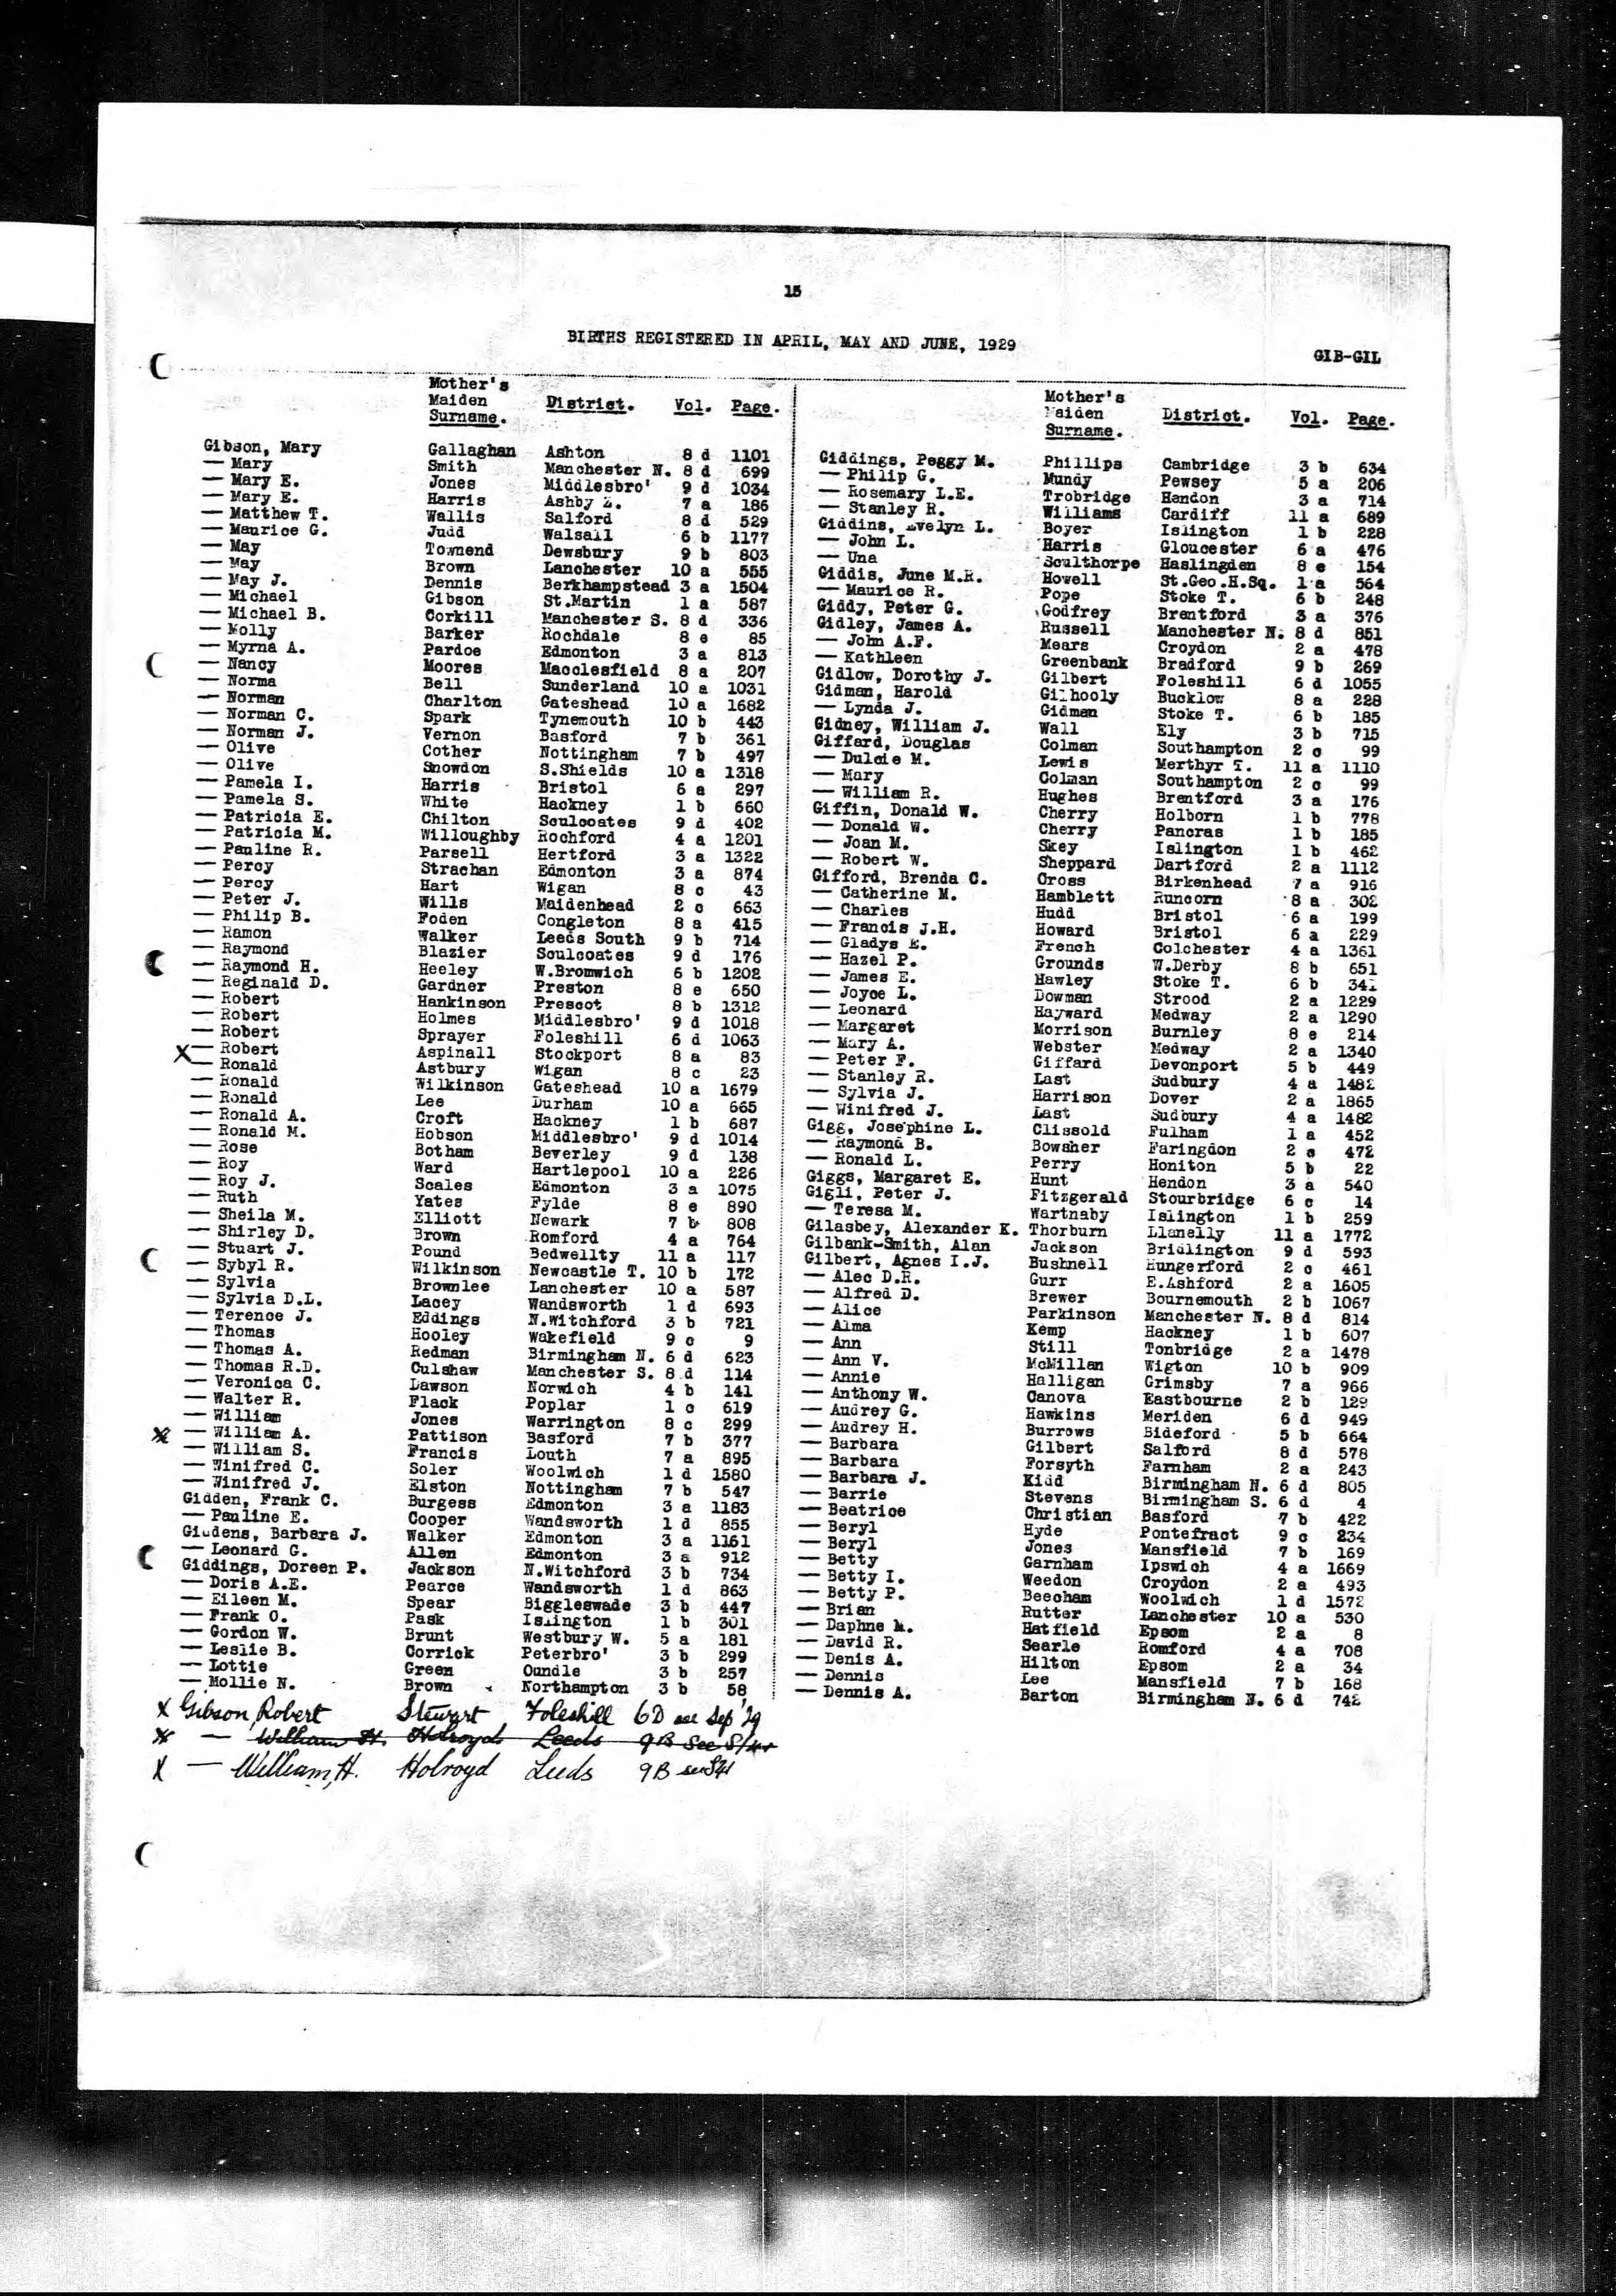 15
BIRTHS REGISTERED IN APRIL, MAY AND JUNE, 1929
GIB-GIL
Mother's
Maiden
Surname. District. Vol. Page.
Gibson, Mary Gallaghan Ashton 8 d 1101
— Mary Smith Manchester N. 8 d 699
— Mary E. Jones Middlesbro' 9 d 1034
— Mary E. Harris Ashby Z. 7 a 186
— Matthew T. Wallis Salford 8 d 529
— Maurice G. Judd Walsall 6 b 1177
— May Townend Dewsbury 9 b 803
— May Brown Lanchester 10 a 555
— May J. Dennis Berkhampstead 3 a 1504
— Michael Gibson St.Martin 1 a 587
— Michael B. Corkill Manchester S. 8 d 336
— Molly Barker Rochdale 8 e 85
— Myrna A. Pardoe Edmonton 3 a 813
— Nancy Moores Macclesfield 8 a 207
— Norma Bell Sunderland 10 a 1031
— Norman Charlton Gateshead 10 a 1682
— Norman C. Spark Tynemouth 10 b 443
— Norman J. Vernon Basford 7 b 361
— Olive Cother Nottingham 7 b 497
— Olive Snowdon S.Shields 10 a 1318
— Pamela I. Harris Bristol 6 a 297
— Pamela S. White Hackney 1 b 660
— Patricia E. Chilton Sculcoates 9 d 402
— Patricia M. Willoughby Rochford 4 a 1201
— Pauline R. Parsell Hertford 3 a 1322
— Percy Strachan Edmonton 3 a 874
— Percy Hart Wigan 8 c 43
— Peter J. Wills Maidenhead 2 c 663
— Philip B. Foden Congleton 8 a 415
— Ramon Walker Leeds South 9 b 714
— Raymond Blazier Sculcoates 9 d 176
— Raymond H. Heeley W.Bromwich 6 b 1202
— Reginald D. Gardner Preston 8 e 650
— Robert Hankinson Prescot 8 b 1312
— Robert Holmes Middlesbro' 9 d 1018
— Robert Sprayer Foleshill 6 d 1063
X — Robert Aspinall Stockport 8 a 83
— Ronald Astbury Wigan 8 c 23
— Ronald Wilkinson Gateshead 10 a 1679
— Ronald Lee Durham 10 a 665
— Ronald A. Croft Hackney 1 b 687
— Ronald M. Hobson Middlesbro' 9 d 1014
— Rose Botham Beverley 9 d 138
— Roy Ward Hartlepool 10 a 226
— Roy J. Scales Edmonton 3 a 1075
— Ruth Yates Fylde 8 e 890
— Sheila M. Elliott Newark 7 b 808
— Shirley D. Brown Romford 4 a 764
— Stuart J. Pound Bedwellty 11 a 117
— Sybyl R. Wilkinson Newcastle T. 10 b 172
— Sylvia Brownlee Lanchester 10 a 587
— Sylvia D.L. Lacey Wandsworth 1 d 693
— Terence J. Eddings N.Witchford 3 b 721
— Thomas Hooley Wakefield 9 c 9
— Thomas A. Redman Birmingham N. 6 d 623
— Thomas R.D. Culshaw Manchester S. 8 d 114
— Veronica C. Lawson Norwich 4 b 141
— Walter R. Flack Poplar 1 c 619
— William Jones Warrington 8 c 299
X — William A. Pattison Basford 7 b 377
— William S. Francis Louth 7 a 895
— Winifred C. Soler Woolwich 1 d 1580
— Winifred J. Elston Nottingham 7 b 547
Gidden, Frank C. Burgess Edmonton 3 a 1183
— Pauline E. Cooper Wandsworth 1 d 855
Giddens, Barbara J. Walker Edmonton 3 a 1161
— Leonard G. Allen Edmonton 3 a 912
Giddings, Doreen P. Jackson N.Witchford 3 b 734
— Doris A.E. Pearce Wandsworth 1 d 863
— Eileen M. Spear Biggleswade 3 b 447
— Frank O. Pask Islington 1 b 301
— Gordon W. Brunt Westbury W. 5 a 181
— Leslie B. Corrick Peterbro' 3 b 299
— Lottie Green Oundle 3 b 257
— Mollie N. Brown Northampton 3 b 58
X Gibson, Robert Stewart Foleshill 6D see Sep '29
X — William H. Holroyd Leeds 9B See S/41
X — William, H. Holroyd Leeds 9B see S41
Mother's
Maiden
Surname. District. Vol. Page.
Giddings, Peggy M. Phillips Cambridge 3 b 634
— Philip G. Mundy Pewsey 5 a 206
— Rosemary L.E. Trobridge Hendon 3 a 714
— Stanley R. Williams Cardiff 11 a 689
Giddins, Evelyn L. Boyer Islington 1 b 228
— John L. Harris Gloucester 6 a 476
— Una Sculthorpe Haslingden 8 e 154
Giddis, June M.R. Howell St.Geo.H.Sq. 1 a 564
— Maurice R. Pope Stoke T. 6 b 248
Giddy, Peter G. Godfrey Brentford 3 a 376
Gidley, James A. Russell Manchester N. 8 d 851
— John A.F. Mears Croydon 2 a 478
— Kathleen Greenbank Bradford 9 b 269
Gidlow, Dorothy J. Gilbert Foleshill 6 d 1055
Gidman, Harold Gilhooly Bucklow 8 a 228
— Lynda J. Gidman Stoke T. 6 b 185
Gidney, William J. Wall Ely 3 b 715
Giffard, Douglas Colman Southampton 2 c 99
— Dulcie M. Lewis Merthyr T. 11 a 1110
— Mary Colman Southampton 2 c 99
— William R. Hughes Brentford 3 a 176
Giffin, Donald W. Cherry Holborn 1 b 778
— Donald W. Cherry Pancras 1 b 185
— Joan M. Skey Islington 1 b 462
— Robert W. Sheppard Dartford 2 a 1112
Gifford, Brenda C. Cross Birkenhead 7 a 916
— Catherine M. Hamblett Runcorn 8 a 302
— Charles Hudd Bristol 6 a 199
— Francis J.H. Howard Bristol 6 a 229
— Gladys E. French Colchester 4 a 1361
— Hazel P. Grounds W.Derby 8 b 651
— James E. Hawley Stoke T. 6 b 341
— Joyce L. Dowman Strood 2 a 1229
— Leonard Hayward Medway 2 a 1290
— Margaret Morrison Burnley 8 e 214
— Mary A. Webster Medway 2 a 1340
— Peter F. Giffard Devonport 5 b 449
— Stanley R. Last Sudbury 4 a 1482
— Sylvia J. Harrison Dover 2 a 1865
— Winifred J. Last Sudbury 4 a 1482
Gigg, Josephine L. Clissold Fulham 1 a 452
— Raymond B. Bowsher Faringdon 2 c 472
— Ronald L. Perry Honiton 5 b 22
Giggs, Margaret E. Hunt Hendon 3 a 540
Gigli, Peter J. Fitzgerald Stourbridge 6 c 14
— Teresa M. Wartnaby Islington 1 b 259
Gilasbey, Alexander K. Thorburn Llanelly 11 a 1772
Gilbank-Smith, Alan Jackson Bridlington 9 d 593
Gilbert, Agnes I.J. Bushnell Hungerford 2 c 461
— Alec D.R. Gurr E.Ashford 2 a 1605
— Alfred D. Brewer Bournemouth 2 b 1067
— Alice Parkinson Manchester N. 8 d 814
— Alma Kemp Hackney 1 b 607
— Ann Still Tonbridge 2 a 1478
— Ann V. McMillan Wigton 10 b 909
— Annie Halligan Grimsby 7 a 966
— Anthony W. Canova Eastbourne 2 b 129
— Audrey G. Hawkins Meriden 6 d 949
— Audrey H. Burrows Bideford 5 b 664
— Barbara Gilbert Salford 8 d 578
— Barbara Forsyth Farnham 2 a 243
— Barbara J. Kidd Birmingham N. 6 d 805
— Barrie Stevens Birmingham S. 6 d 4
— Beatrice Christian Basford 7 b 422
— Beryl Hyde Pontefract 9 c 234
— Beryl Jones Mansfield 7 b 169
— Betty Garnham Ipswich 4 a 1669
— Betty I. Weedon Croydon 2 a 493
— Betty P. Beecham Woolwich 1 d 1572
— Brian Rutter Lanchester 10 a 530
— Daphne M. Hatfield Epsom 2 a 8
— David R. Searle Romford 4 a 708
— Denis A. Hilton Epsom 2 a 34
— Dennis Lee Mansfield 7 b 168
— Dennis A. Barton Birmingham N. 6 d 742